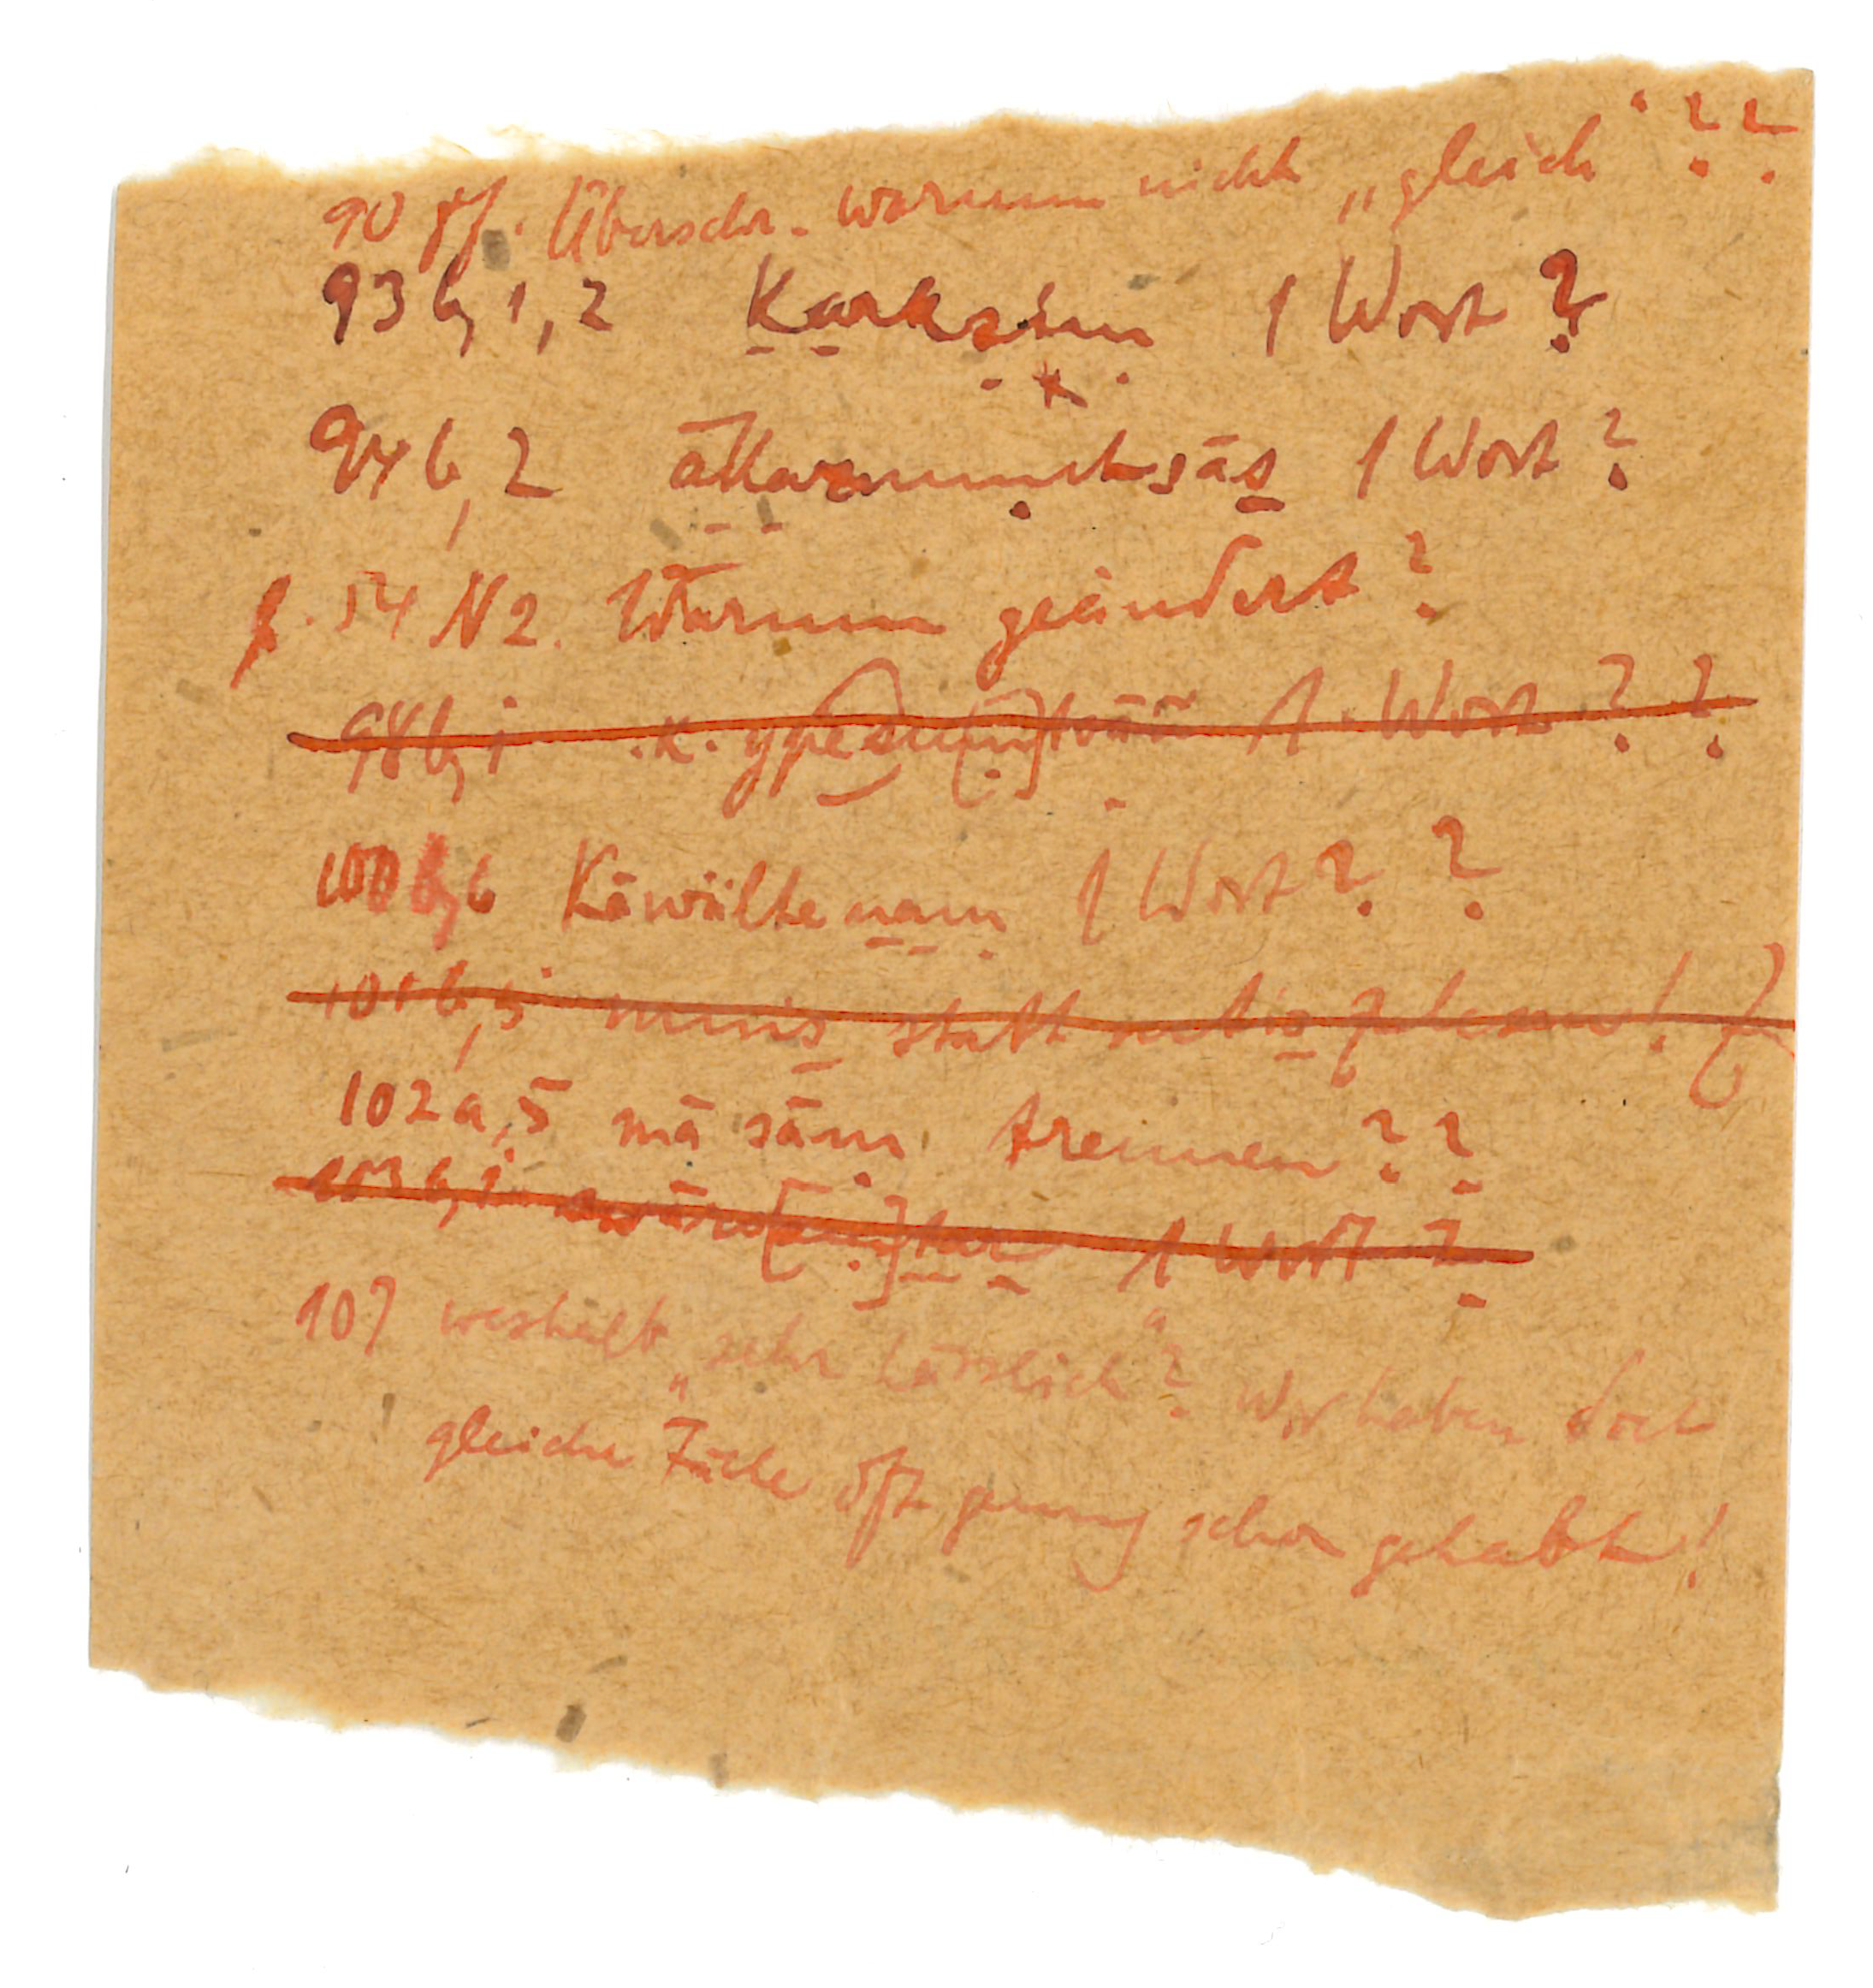 90 ff. Überschr. warum nicht „gleich“ ??
93 b, 1, 2 K̲a̲rkaṣiṃ 1 Wort ?
94 b, 2 1 Wort ?
p. 54 N 2. Warum geändert ?
98 b, 1 Wort ? ?
100 b, 6 Käwälten̲a̲ṃ 1 Wort ? ?
101 b, 5 statt !
102 a, 5 mā sāṃ trennen ? ?
103 b, 1 1 Wort ?
107 weshalb „sehr hässlich“? Wir haben doch
gleiche Fälle oft genug schon gehabt!